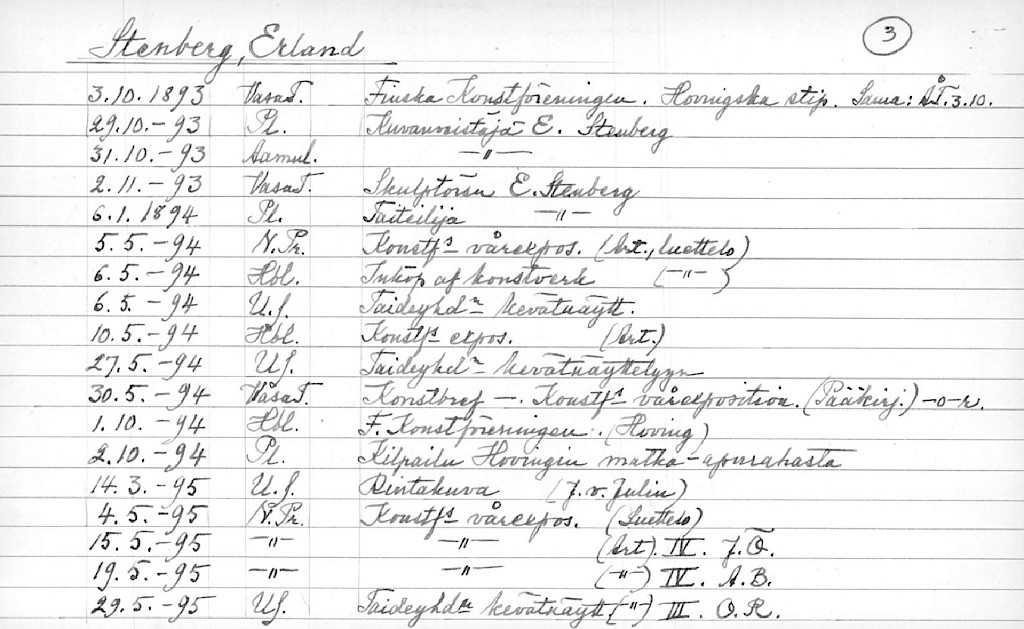 Stenberg, Erland 3
3.10.1893 VasaT. Finska Konstföreningen. Hovingska stip. Sama: ÅT. 3.10.
29.10.-93 Pl. Kuvanveistäjä E. Stenberg
31.10.-93 Aamul. -"-
2.11.-93 VasaT. Skulptören E. Stenberg
6.1.1894 Pl. Taiteilija -"-
5.5.-94 N.Pr. Konstfs vårexpos. (Art., luettelo)
6.5.-94 Hbl. Inköp af konstverk (-"-)
6.5.-94 U.S. Taideyhdn kevätnäytt.
10.5.-94 Hbl. Konstfs expos. (Art.)
27.5.-94 U.S. Taideyhdn kevätnäyttelyyn
30.5.-94 VasaT. Konstbref -. Konstfs vårexposition. (Pääkirj.) -o-r.
1.10.-94 Hbl. F. Konstföreningen. (Hoving)
2.10.-94 Pl. Kilpailu Hovingin matka-apurahasta
14.3.-95 U.S. Rintakuva (J. v. Julin)
4.5.-95 N.Pr. Konstfs vårexpos. (Luettelo)
15.5.-95 -"- -"- (Art). IV. J.Ö.
19.5.-95 -"- -"- (-"-) IV. A.B.
29.5.-95 U.S. Taideyhdn kevätnäytt. (-"-) III. O.R.